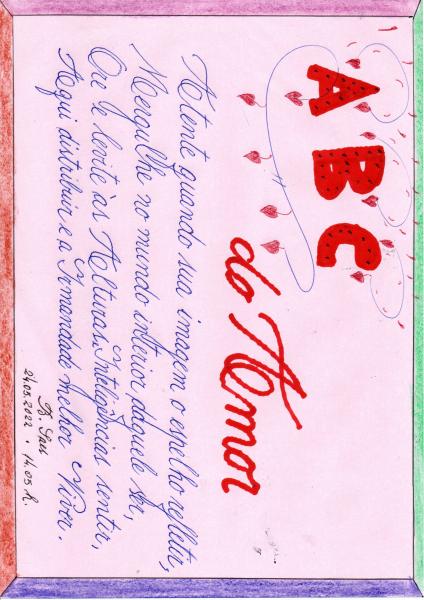 ABC
do Amor
Atente quando sua imagem o espelho refletir,
Mergulhe no mundo interior daquele ser,
Que te levite às Alturas, Inteligências sentir,
Aqui distribuir e a Irmandade melhor Viver.
24.05.2022 . 14.05 h.